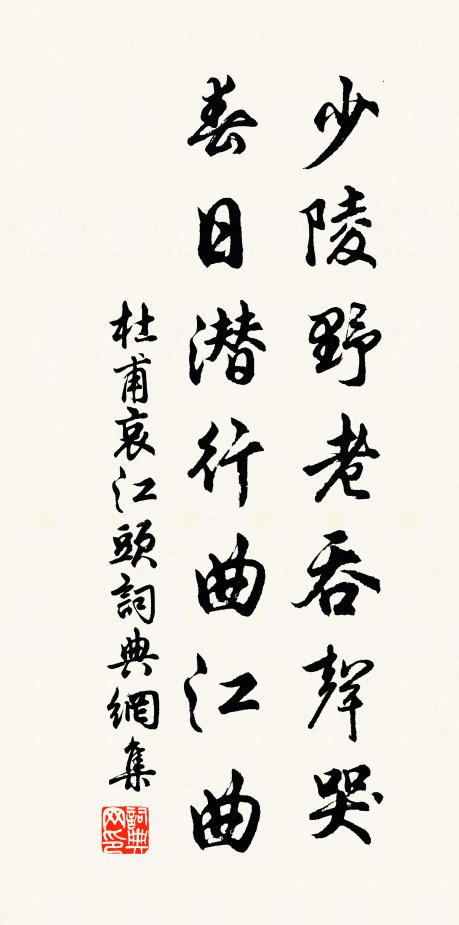 少陵野老吞聲哭
春日潜行曲江曲
杜甫哀江頭詞典網集
詞典网印